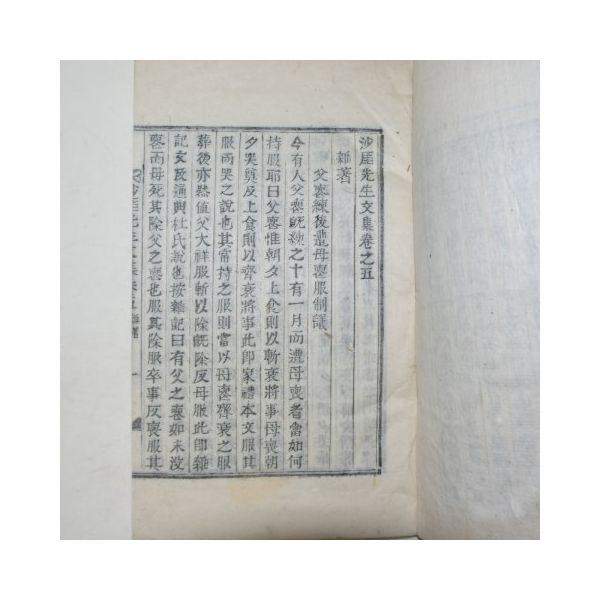 沙厓先生文集卷之五
雜著
父喪練後遭母喪服制議
今有人父喪旣練之十有一月而遭母喪者當如何
持服耶曰父喪惟朝夕上食則以斬衰將事母喪朝
夕哭奠反上食則以齊衰將事此卽家禮本文服其
服而哭之說也其常持之服則當以母喪齊衰之服
葬後亦然值父大祥服斬以除旣除反母服此卽雜
記文及通典杜氏說也按雜記曰有父之喪如未沒
喪而母死其除父之喪也服其除服卒事反喪服其